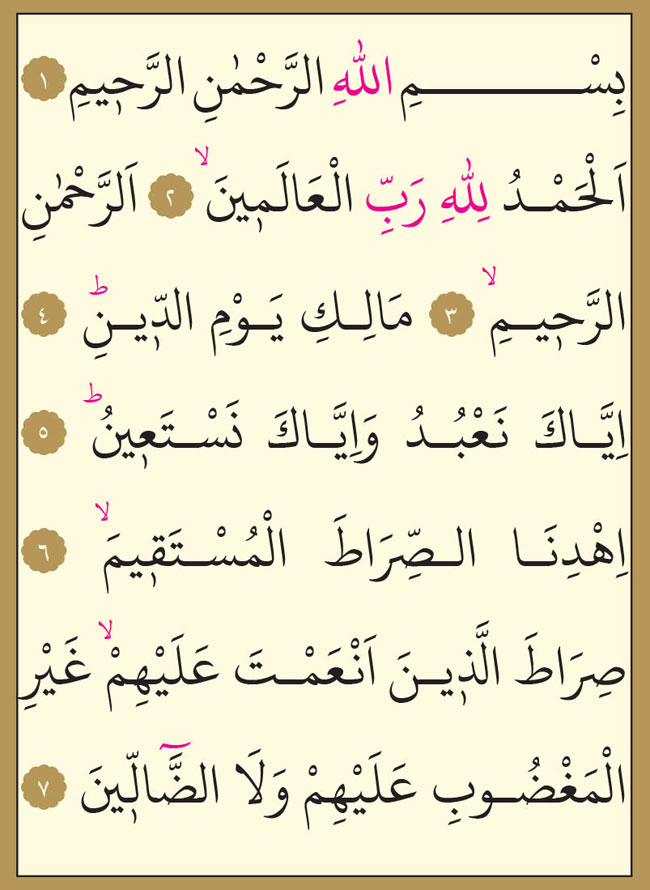 بِسْــــــــمِ اللهِ الرَّحْمٰنِ الرَّح۪يمِ ١
اَلْحَمْـدُ لِلّٰهِ رَبِّ الْعَالَم۪ينَۙ ٢ اَلرَّحْمٰنِ
الرَّح۪يـمِۙ ٣ مَالِـكِ يَـوْمِ الدّ۪يـنِۜ ٤
اِيَّـاكَ نَعْبُـدُ وَاِيَّـاكَ نَسْـتَع۪ينُۜ ٥
اِهْدِنَـا الـصِّرَاطَ الْمُسْـتَق۪يمَۙ ٦
صِرَاطَ الَّذ۪يـنَ اَنْعَمْـتَ عَلَيْهِمْۙ غَيْرِ
الْمَغْضُـوبِ عَلَيْهِمْ وَلَا الضَّٓالّ۪ينَ ٧